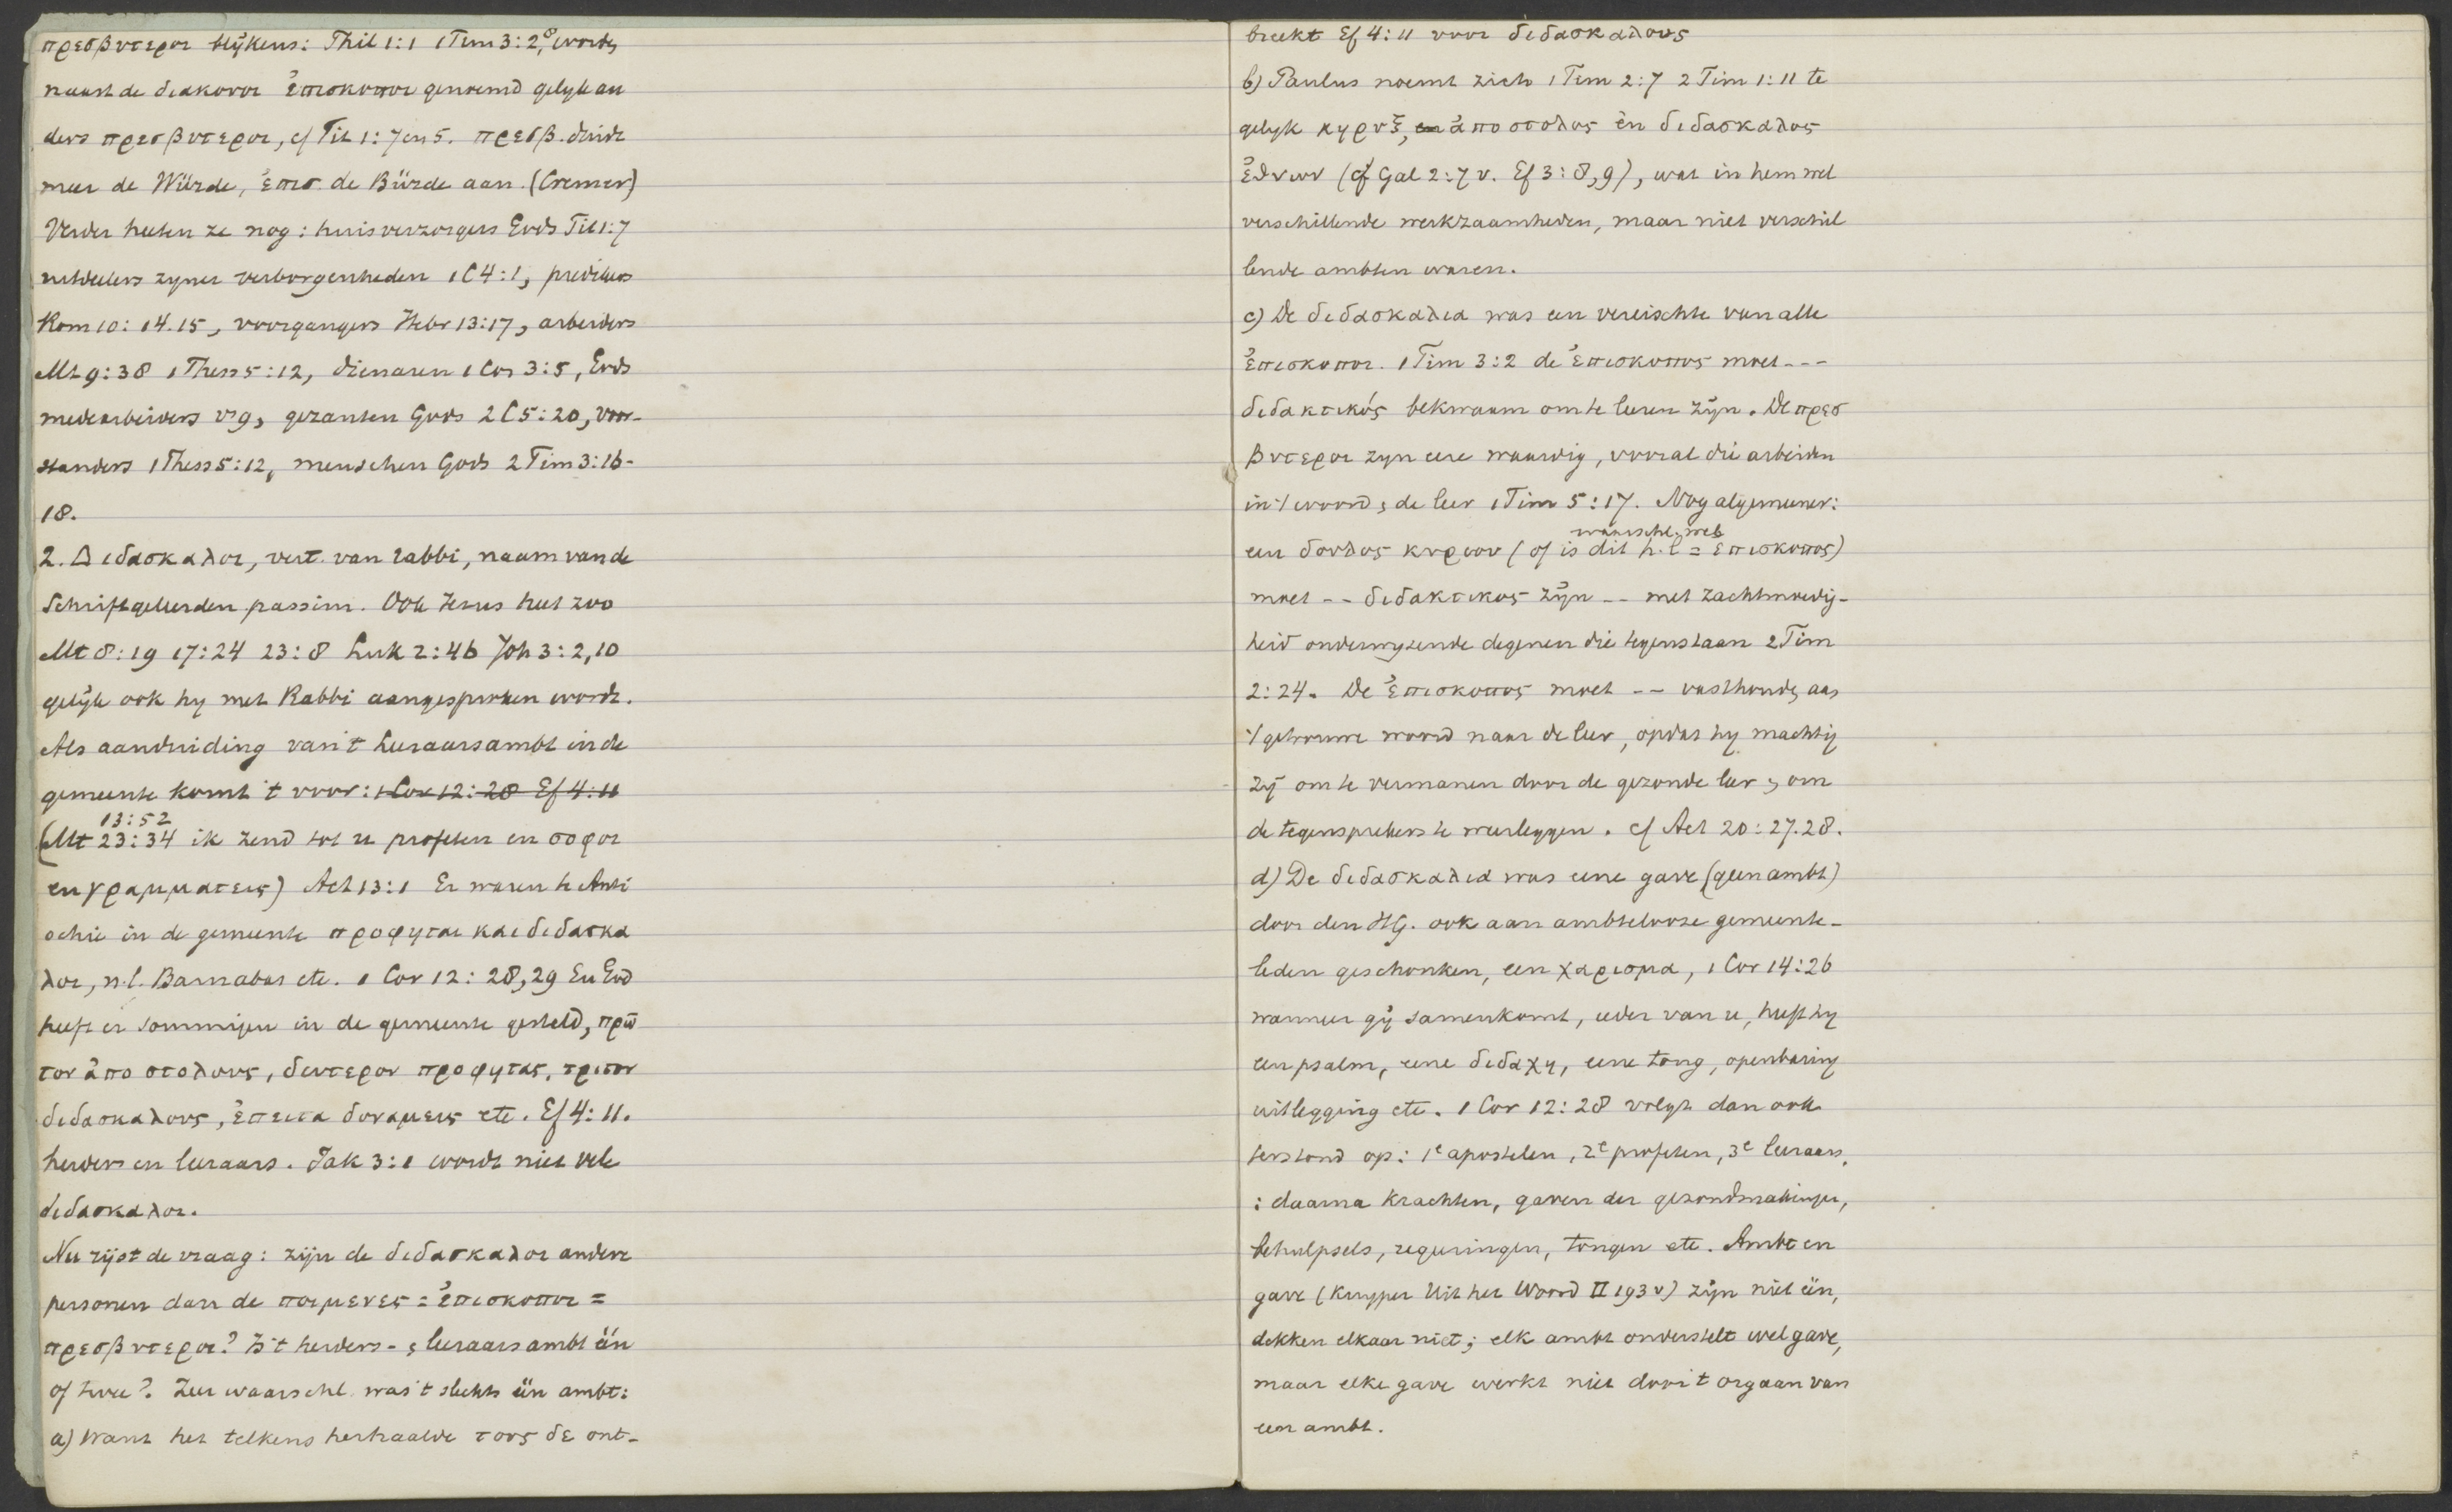 πρεσβυτεροι blijkens: Phil 1:1 1 Tim 3:2,8 worden
naast de διακονοι ἐπισκοποι genoemd gelijk an
ders πρεσβυτεροι, cf Tit 1:7 en 5. πρεσβ. duidt
meer de Würde, ἐπισ de Bürde aan. (Cremer)
Verder heeten ze nog: huisverzorgers Gods Tit 1:7
uitdeelers zyner verborgenheden 1 C 4:1, predikers
Rom 10:14.15, voorgangers Hebr 13:17, arbeiders
Mt 9:38 1 Thess 5:12, dienaren 1 Cor 3:5, Gods
medearbeiders vs 9, gezanten Gods 2 C 5:20, voor-
standers 1 Thess 5:12, menschen Gods 2 Tim 3:16-
18.
2. Διδασκαλοι, vert. van rabbi, naam van de
Schriftgeleerden passim. Ook Jezus heet zoo
Mt 8:19 17:24 23:8 Luk 2:46 Joh 3:2,10
gelijk ook hy met Rabbi aangesproken wordt.
Als aanduiding van 't Leeraarsambt in de
gemeente komt 't voor: 1 Cor 12:28 Ef 4:11
13:52
(Mt 23:34 ik zend tot u profeten en σοφοι
en γραμματεις) Act 13:1 Er waren te Anti
ochie in de gemeente προφηται και διδασκα
λοι, n.l. Barnabas etc. 1 Cor 12:28,29 En God
heeft er sommigen in de gemeente gesteld, πρῶ
τον ἀποστολους, δευτερον προφητας, τριτον
διδασκαλους, ἐπειτα δυναμεις etc. Ef 4:11.
herders en leeraars. Jak 3:1 wordt niet vele
διδασκαλοι.
Nu rijst de vraag: zijn de διδασκαλοι andere
personen dan de ποιμενες = ἐπισκοποι =
πρεσβυτεροι? Is 't herders- en leeraarsambt één
of twee? Zeer waarschl. was 't slechts één ambt:
a) Want het telkens herhaalde τους δε ont-
breekt Ef 4:11 voor διδασκαλους
b) Paulus noemt zich 1 Tim 2:7 2 Tim 1:11 te
gelijk κηρυξ, en ἀποστολος èn διδασκαλος
ἐθνων (cf Gal 2:7 v. Ef 3:8,9), wat in hem wel
verschillende werkzaamheden, maar niet verschil
lende ambten waren.
c) De διδασκαλια was een vereischte van alle
ἐπισκοποι. 1 Tim 3:2 de ἐπισκοπος moet ---
διδακτικός bekwaam om te leeren zijn. De πρεσ
βυτεροι zyn eere waardig, vooral die arbeiden
in 't woord en de leer 1 Tim 5:17. Nog algemeener:
waarschl. wel
een δουλος κυριου (of is dit h.l. = ἐπισκοπος)
moet -- διδακτικος zijn -- met zachtmoedig-
heid onderwyzende degenen die tegenstaan 2 Tim
2:24. De ἐπισκοπος moet -- vasthouden aan
't getrouwe woord naar de leer, opdat hy machtig
zij om te vermanen door de gezonde leer en om
de tegensprekers te weerleggen. cf Act 20:27.28.
d) De διδασκαλια was eene gave (geen ambt)
door den HG. ook aan ambtelooze gemeente-
leden geschonken, een χαρισμα, 1 Cor 14:26
wanneer gij samenkomt, ieder van u, heeft hy
een psalm, eene διδαχη, eene tong, openbaring
uitlegging etc. 1 Cor 12:28 volgt dan ook
terstond op: 1e apostelen, 2e profeten, 3e leeraars,
: daarna krachten, gaven der gezondmakingen,
behulpsels, regeeringen, tongen etc. Ambt en
gave (Kuyper Uit het Woord II 193 v) zijn niet één,
dekken elkaar niet; elk ambt onderstelt wel gave,
maar elke gave werkt niet door 't orgaan van
een ambt.